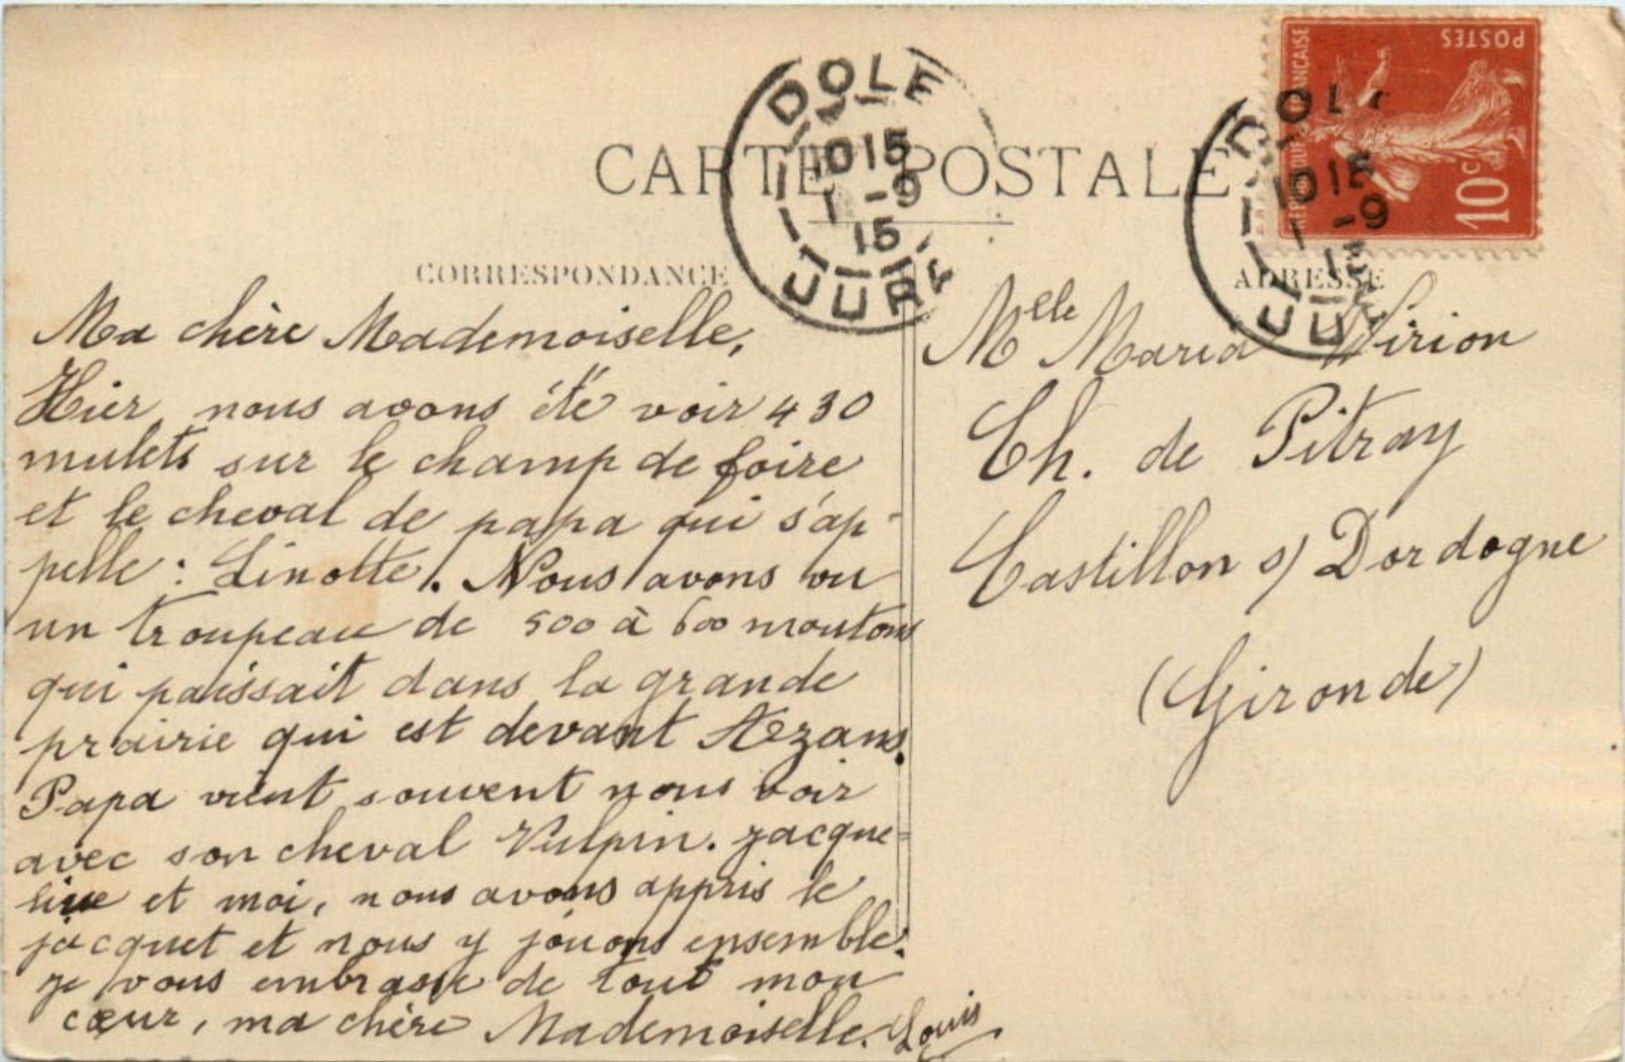 CARTE POSTALE
CORRESPONDANCE
Ma chère Mademoiselle,
Hier nous avons été voir 430
mulets sur le champ de foire
et le cheval de papa qui s'ap-
pelle : Linotte. Nous avons vu
un troupeau de 500 à 600 moutons
qui paissait dans la grande
prairie qui est devant Azans.
Papa vient souvent nous voir
avec son cheval Vulpin. Jacque-
line et moi, nous avons appris le
jacquet et nous y jouons ensemble.
Je vous embrasse de tout mon
cœur, ma chère Mademoiselle. Louis
ADRESSE
Mlle Maria Virion
Ch. de Pitray
Castillon s/ Dordogne
(Gironde)
DOLE
1015
1 -9
15
JURA
DOL
1015
1 -9
1
JU
REPUBLIQUE FRANÇAISE
POSTES
10c